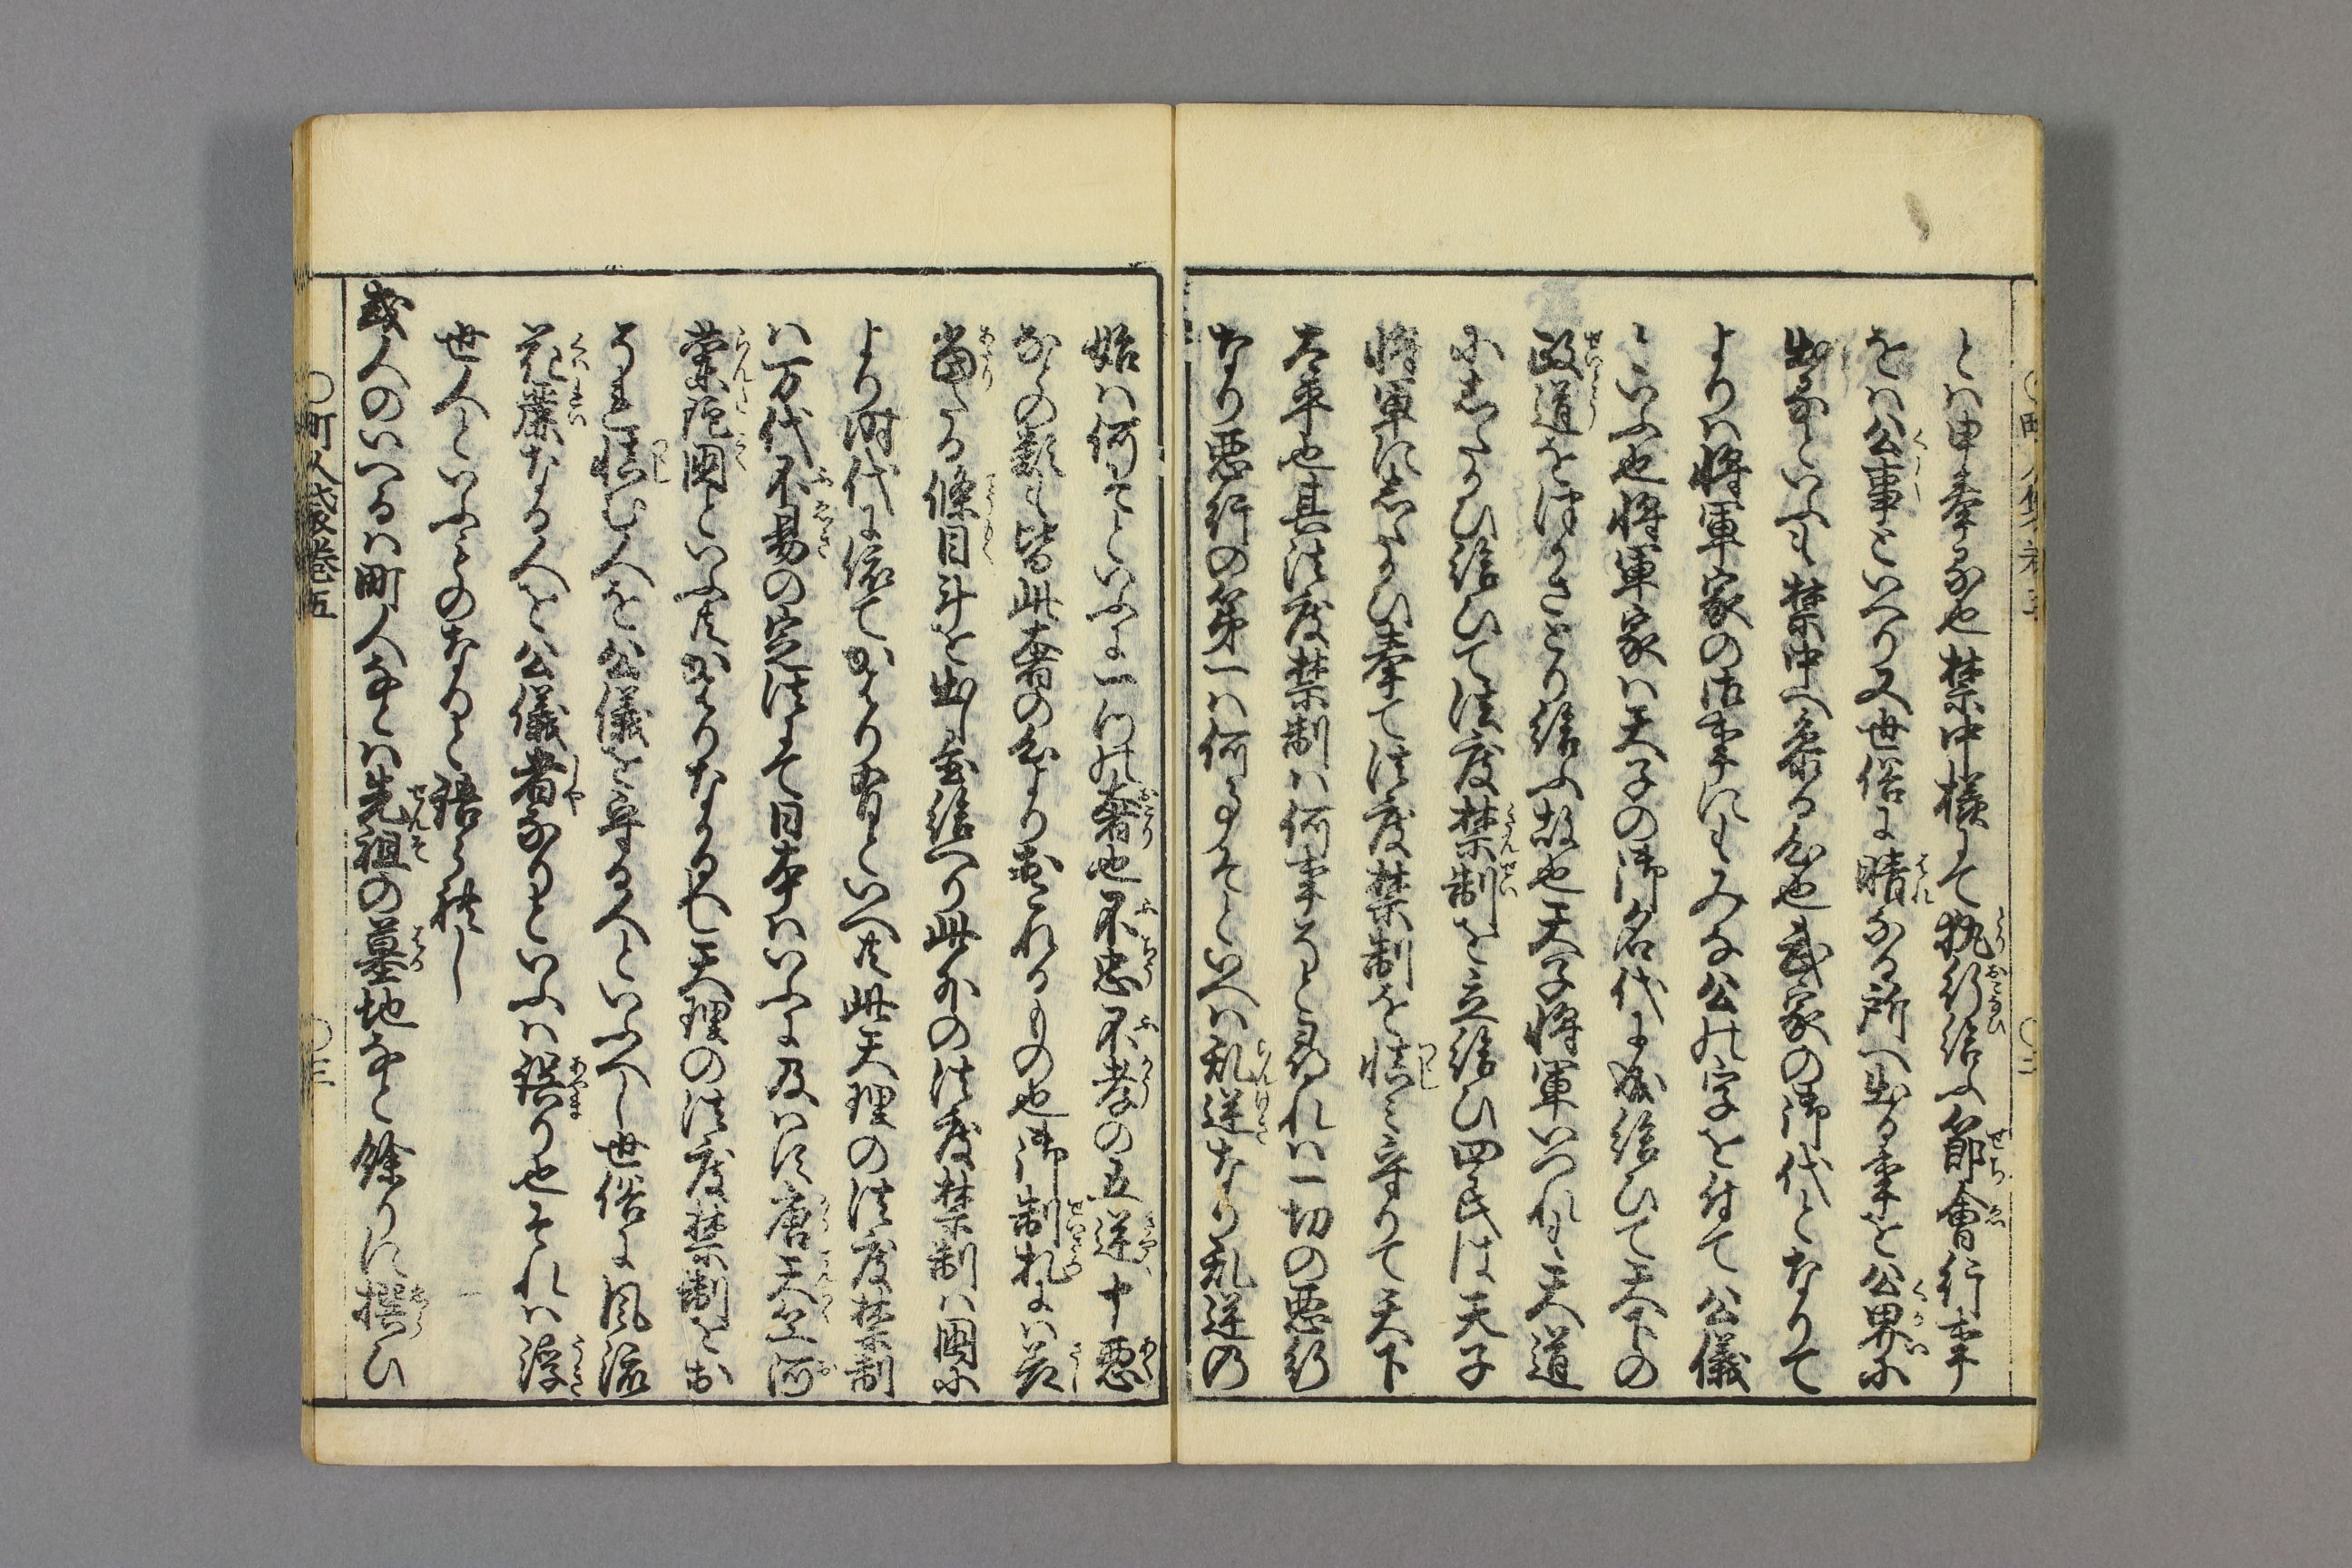 とハ申奉る也禁中様にて執行給ふ節會行事
をハ公事といへり又世俗に晴なる所へ出る事を公界に
出るといふも禁中へ参る心也武家の御代となりて
よりハ将軍家の御事にもみな公の字を付て公儀
といふ也将軍家ハ天子の御名代に成給ひて天下の
政道をつかさとり給ふ故也天子将軍いつれも天道
にしたかひ給ひて法度禁制を立給ひ四民は天子
将軍にしたかひ奉て法度禁制を慎ミ守りて天下
太平也其法度禁制ハ何事そと尋れハ一切の悪行
なり悪行の第一ハ何事そといへハ乱逆なり乱逆の
始ハ何そといふに一つの奢也不忠不孝の五逆十悪
なとの類も皆此奢の心より出されるもの也御制札にハ差
當たる條目斗を出し給へり此外の法度禁制ハ國に
より時代に依てかはり有といへ共此天理の法度禁制
ハ万代不易の定法にて日本ハいふに及ハす唐天竺阿
蘭陀国といふ共かはりなる也天理の法度禁制をお
それ慎む人を公儀を守る人といふへし世俗に風流
花麗なる人を公儀者なりといふハ誤り也それハ浮
世人といふものなりと語られし
或人のいへるハ町人なとハ先祖の墓地なと餘りに撰ひ
○町人袋巻五
○三